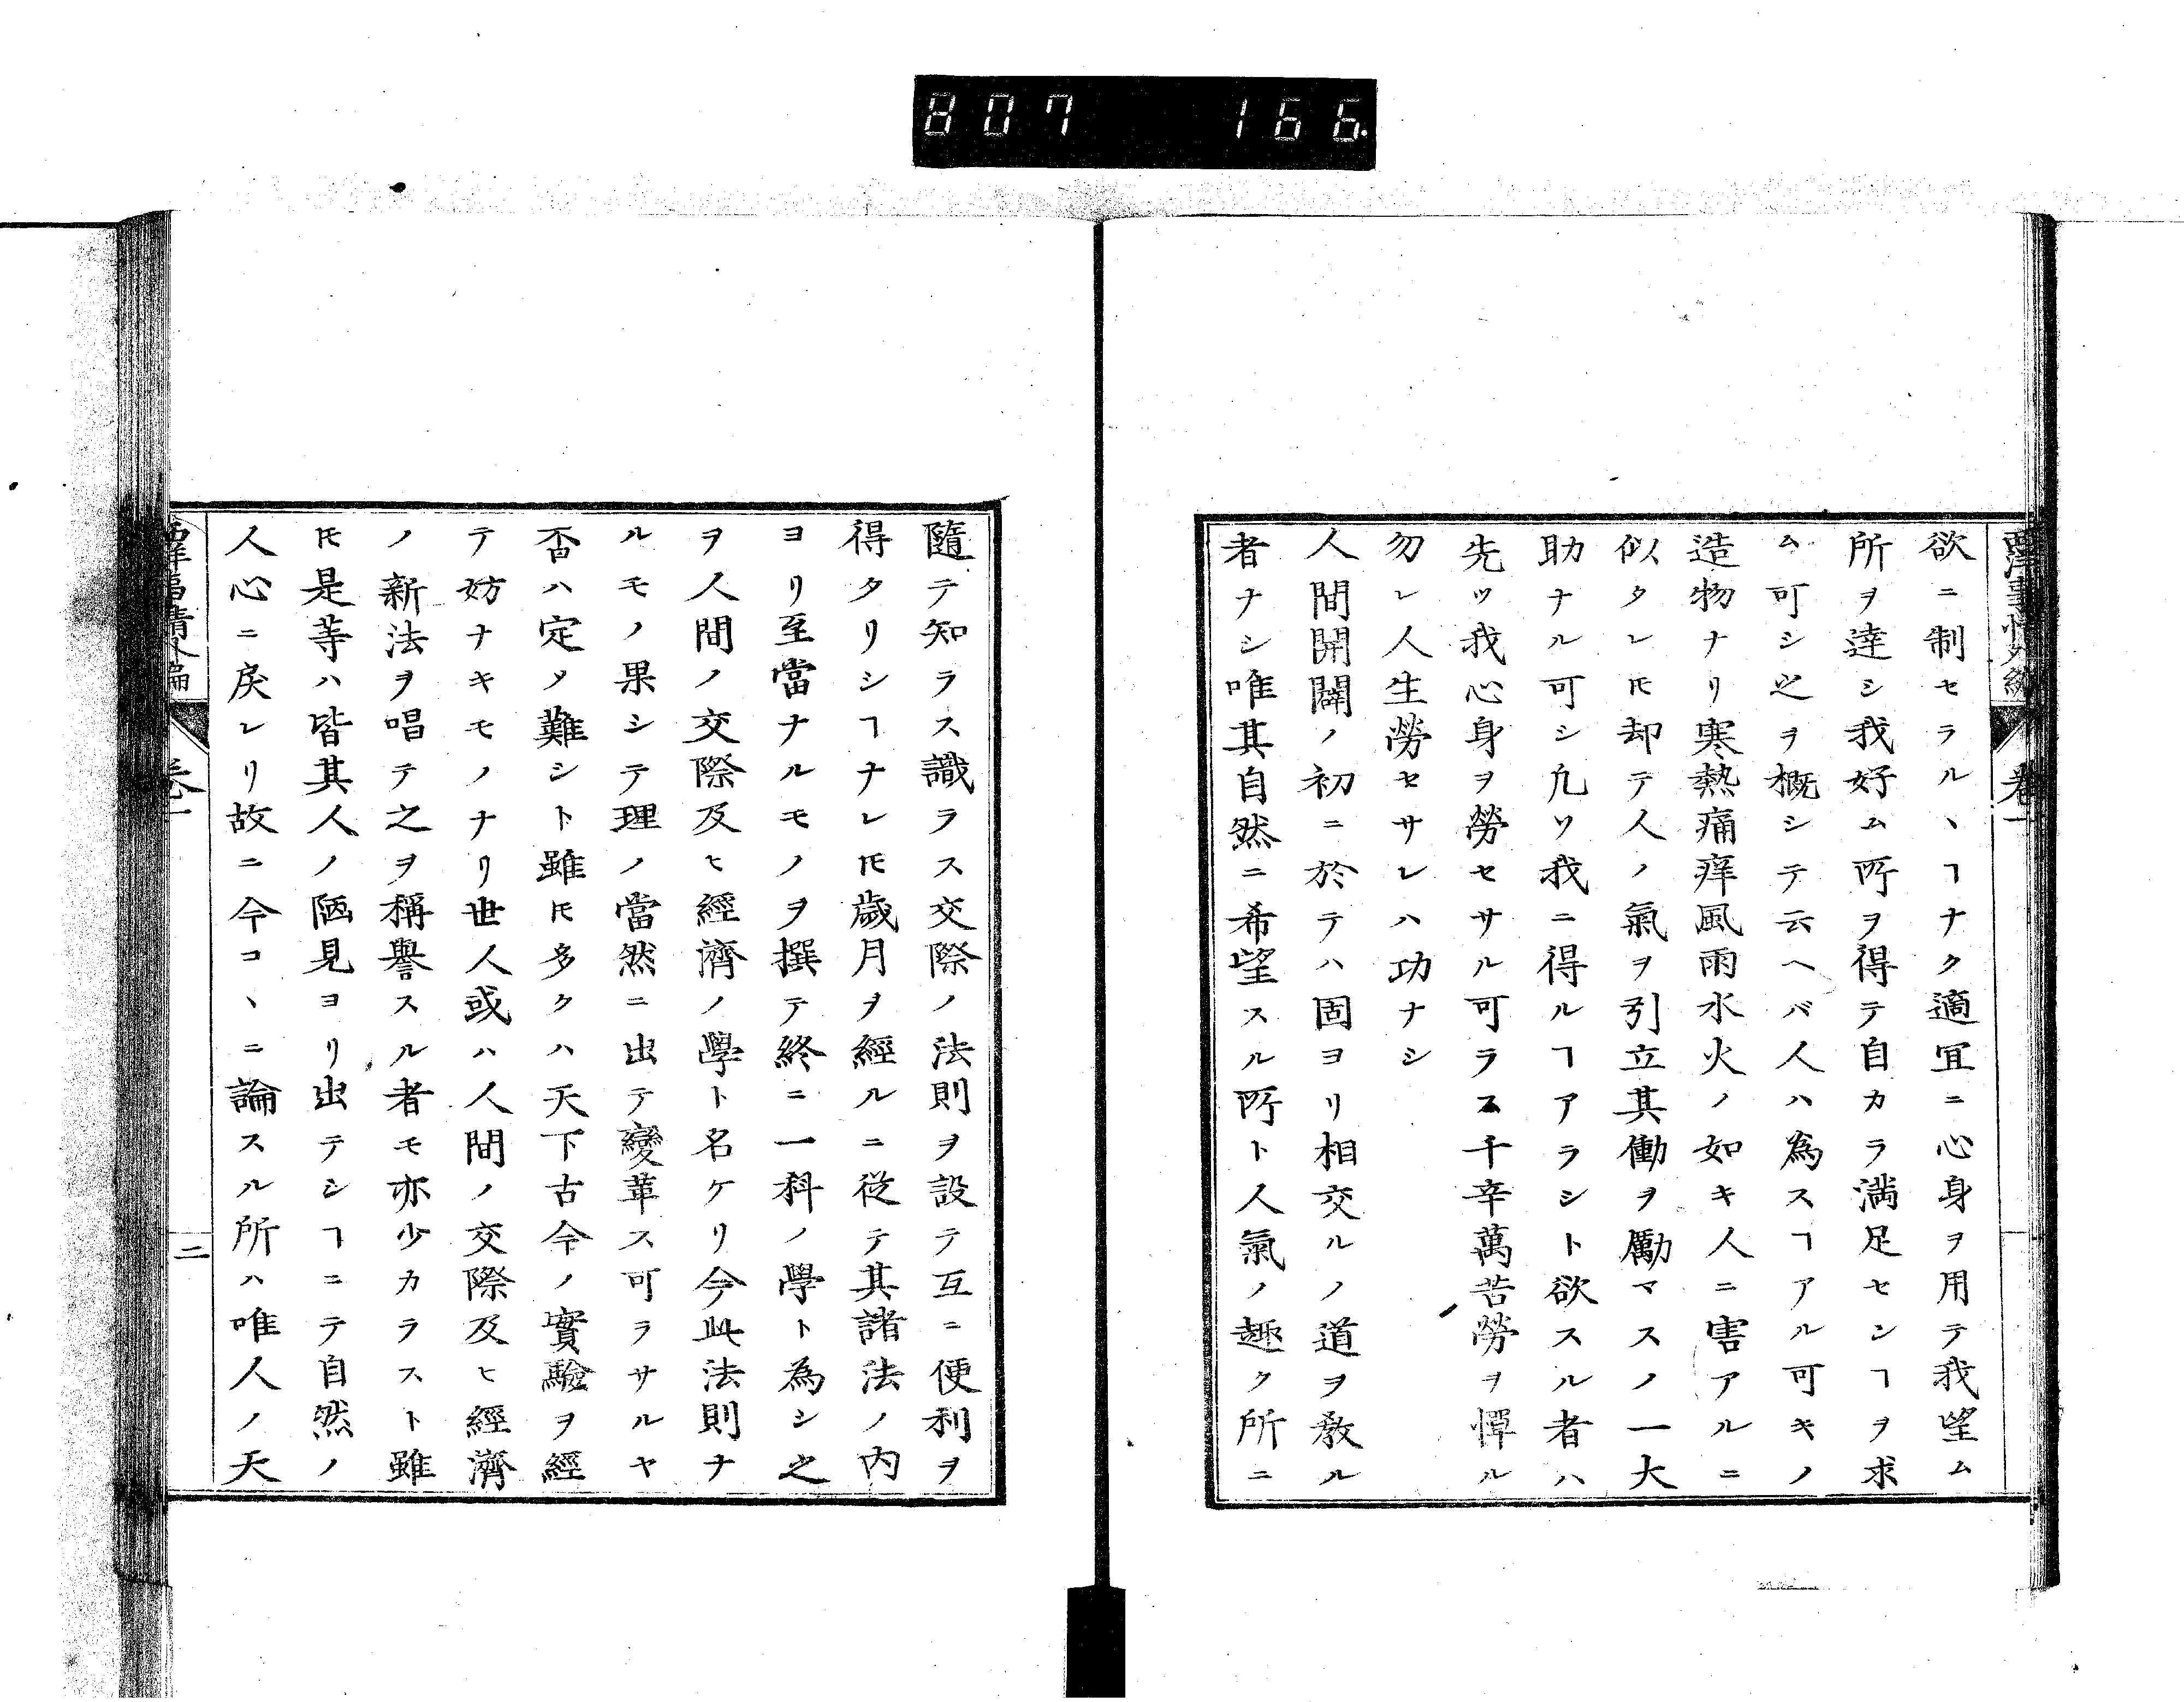 807 166
西洋事情外編 卷一
欲ニ制セラル、ヿナク適宜ニ心身ヲ用テ我望ム
所ヲ達シ我好ム所ヲ得テ自カラ満足センヿヲ求
ム可シ之ヲ概シテ云ヘバ人ハ為スヿアル可キノ
造物ナリ寒熱痛痒風雨水火ノ如キ人ニ害アルニ
似タレ𪜈却テ人ノ氣ヲ引立其働ヲ勵マスノ一大
助ナル可シ凢ソ我ニ得ルヿアラシト欲スル者ハ
先ツ我心身ヲ勞セサル可ラス千辛萬苦勞ヲ憚ル
勿レ人生勞セサレハ功ナシ
人間開闢ノ初ニ於テハ固ヨリ相交ルノ道ヲ教ル
者ナシ唯其自然ニ希望スル所ト人氣ノ趣ク所ニ
隨テ知ラス識ラス交際ノ法則ヲ設テ互ニ便利ヲ
得タリシヿナレ𪜈歳月ヲ經ルニ從テ其諸法ノ内
ヨリ至當ナルモノヲ撰テ終ニ一科ノ學ト為シ之
ヲ人間ノ交際及ヒ經濟ノ學ト名ケリ今此法則ナ
ルモノ果シテ理ノ當然ニ出テ變革ス可ラサルヤ
否ハ定メ難シト雖𪜈多クハ天下古今ノ實驗ヲ經
テ妨ナキモノナリ世人或ハ人間ノ交際及ヒ經濟
ノ新法ヲ唱テ之ヲ稱譽スル者モ亦少カラスト雖
𪜈是等ハ皆其人ノ陋見ヨリ出テシヿニテ自然ノ
人心ニ戻レリ故ニ今コ、ニ論スル所ハ唯人ノ天
西洋事情外編 卷一 二